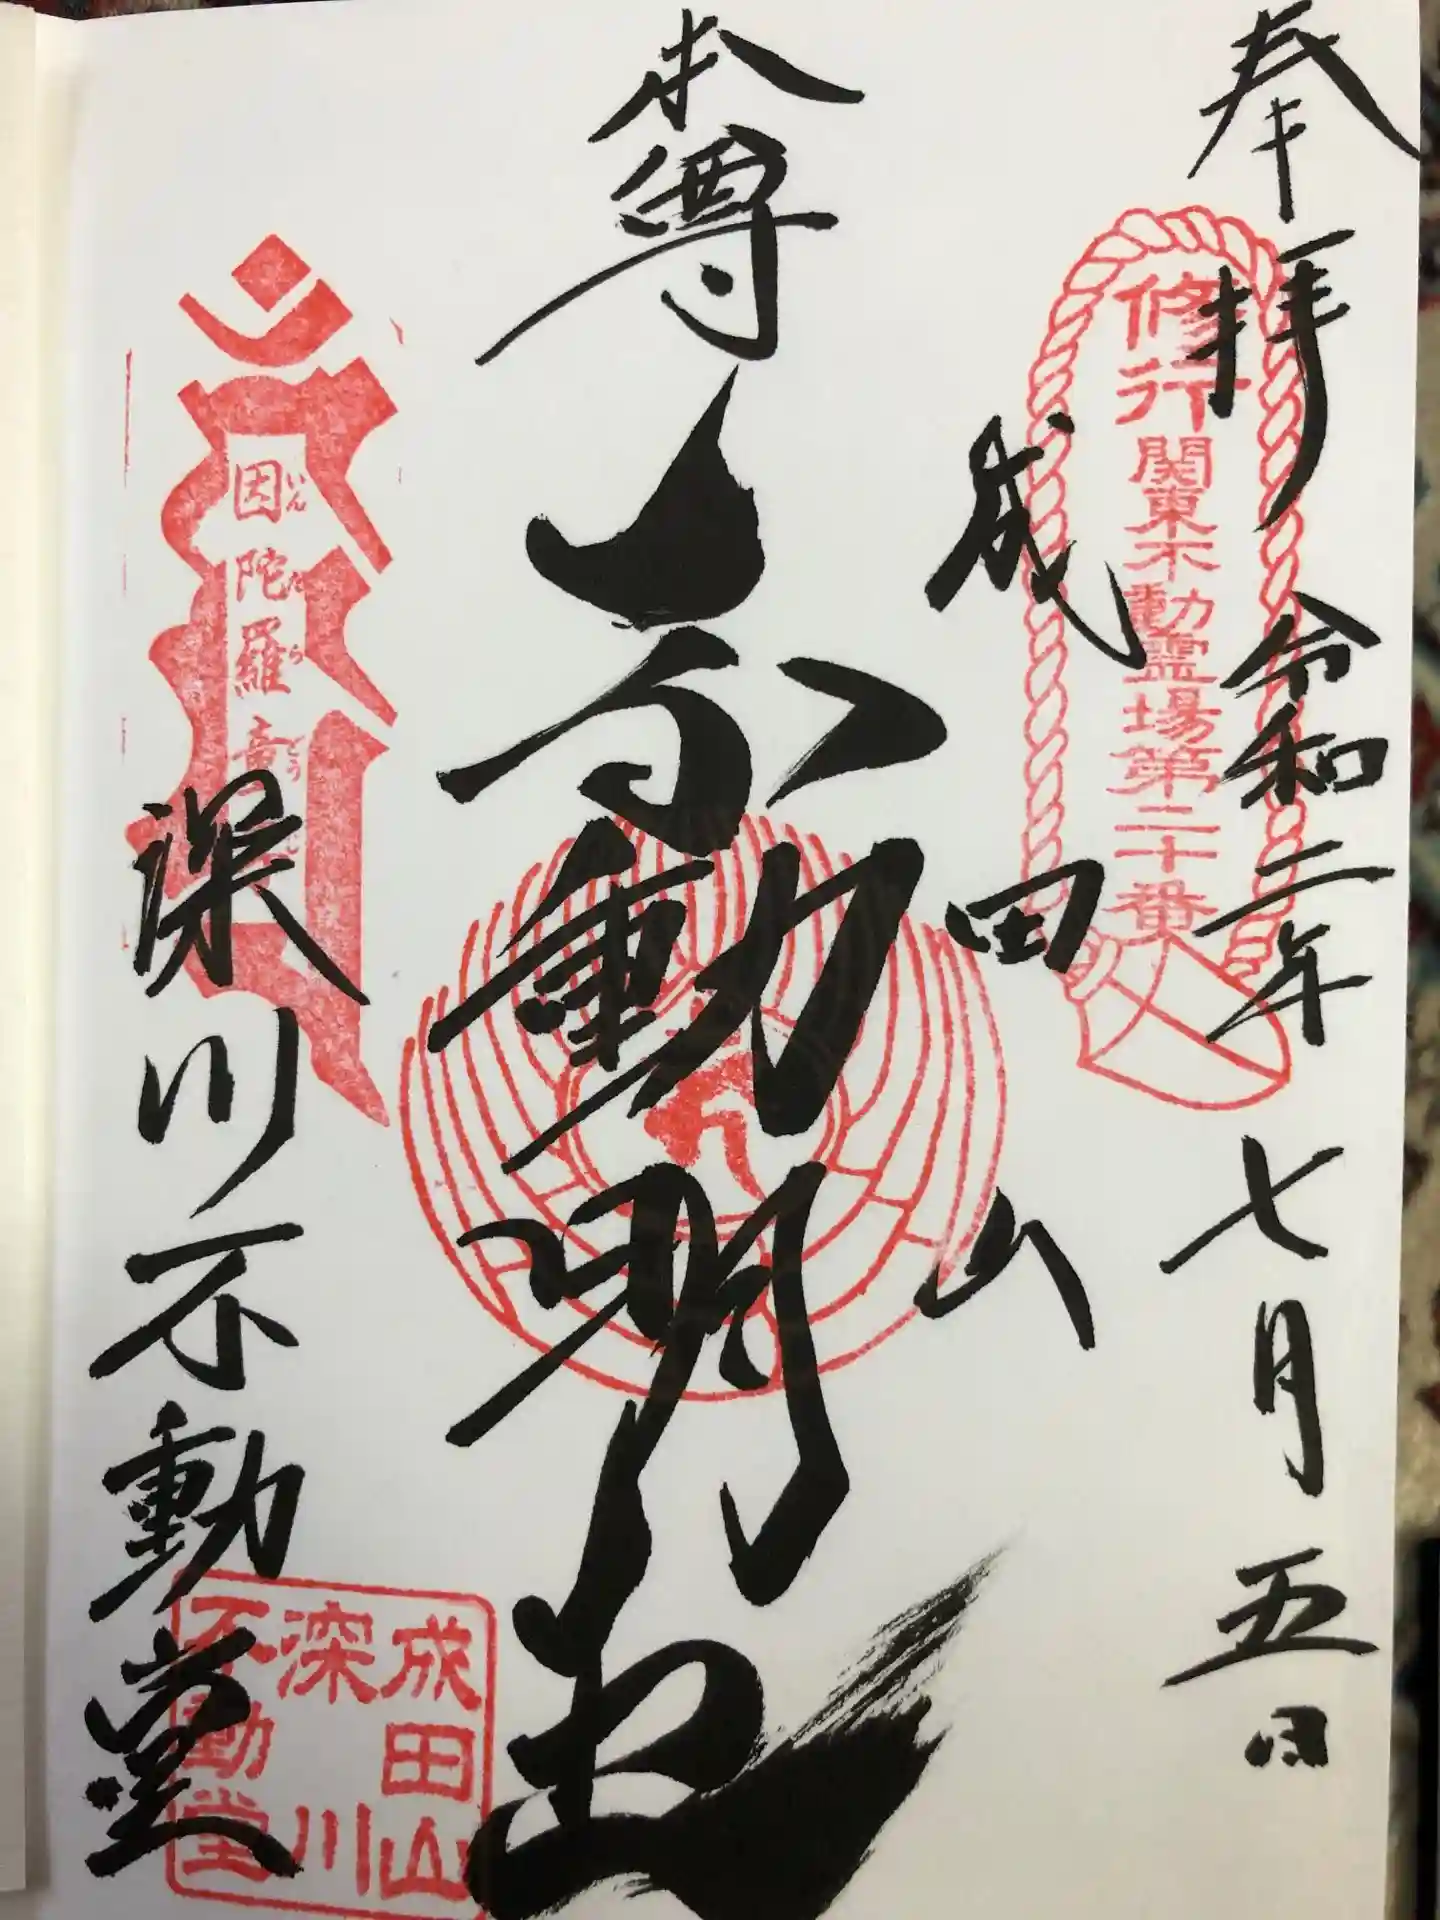 奉拝
令和二年七月五日
修行関東不動霊場第二十番
成田山
本尊不動明王
因陀羅童
いんだらどうじ
深川不動堂
成田山
深川
不動堂